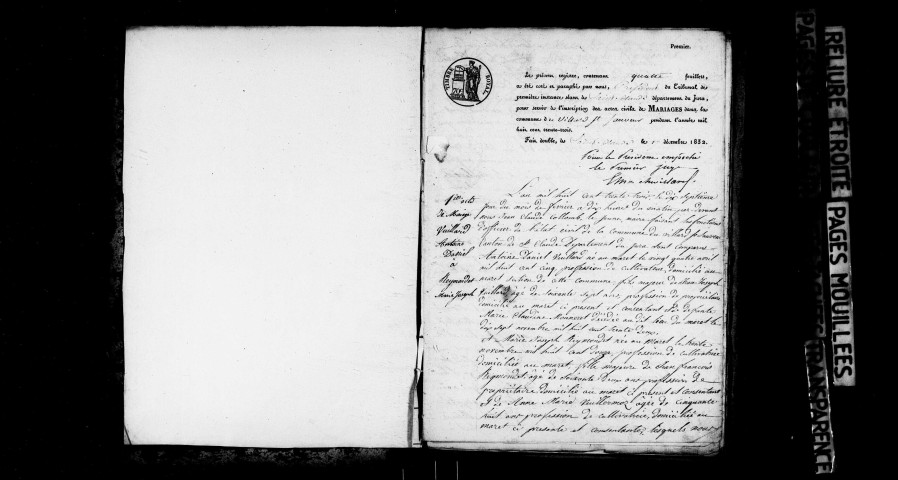 Premier.
TIMBRE ROYAL
Le présent registre, contenant quatre feuillets,
a été coté et paraphé par nous, Président du Tribunal de
première instance séant de département du Jura,
pour servir de l'inscription des actes civils de MARIAGES dans la
commune de Villard St Sauveur pendant l'année mil
huit cent trente-trois.
Fait double, de le décembre 1832.
Pour le Président empêché
le Premier juge
1er acte
de Mariage
Vuillard
Antoine
Daniel
à
Reymondet
Marie Joseph
L'an mil huit cent trente trois le dix septième
jour du mois de février à dix heures du matin par devant
nous Jean Claude Collomb le jeune, maire faisant les fonctions
d'officier de l'état civil de la commune du villard St Sauveur
Canton de St Claude Département du Jura sont comparus
Antoine Daniel Vuillard né au maret le vingt quatre
mil huit cent cinq, profession de cultivateur, domicilié au
maret section de cette commune, fils majeur de Jean Joseph
Vuillard agé de soixante sept ans profession de propriétaire
domicilié au maret ci présent et consentant et de défunte
Marie Claudine Monneret décédée au dit lieu du maret le
dix sept novembre mil huit cent trente deux
et Marie Joseph Reymondet née au Maret le trente
novembre mil huit cent douze, profession de cultivatrice
domiciliée au maret, fille majeure de Jean françois
Reymondet agé de soixante Deux ans profession de
propriétaire domicilié au maret ci présent et consentant
et de Anne Marie Vuillermoz agée de cinquante
huit ans profession de cultivatrice, domiciliée au
maret ci présente et consentante, lesquels nous
RELIURE ETROITE PAGES MOUILLEES
TRANSPARENCE